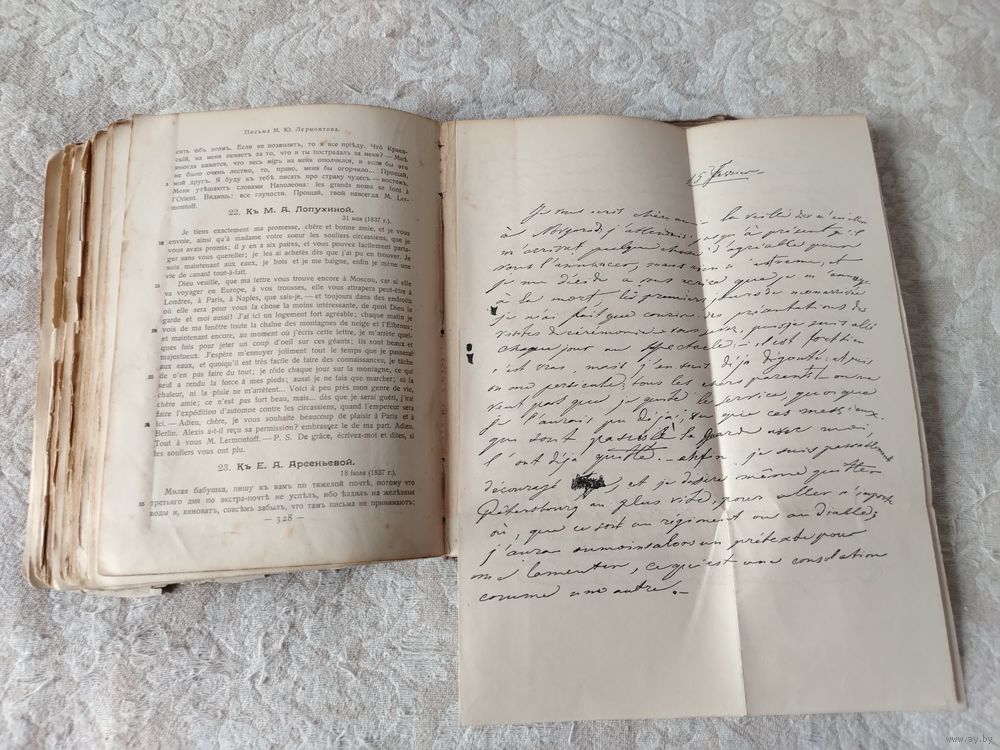 Письма М. Ю. Лермонтова.
сить объ этомъ. Если не позволятъ, то я все пріѣду. Что Краев-
скій, на меня пеняетъ за то, что и ты пострадалъ за меня? — Мнѣ
иногда кажется, что весь міръ на меня ополчился, и если бы это
не было очень лестно, то, право, меня бы огорчило... Прощай,
мой другъ. Я буду къ тебѣ писать про страну чудесъ — востокъ.
Меня утѣшаютъ словами Наполеона: les grands noms se font à
l'Orient. Видишь: все глупости. Прощай, твой навсегда M. Ler-
montoff.
22. Къ М. А. Лопухиной.
31 мая (1837 г.).
Je tiens exactement ma promesse, chère et bonne amie, et je vous
envoie, ainsi qu'à madame votre soeur les souliers circassiens, que je
vous avais promis; il y en a six paires, et vous pouvez facilement parta-
ger sans vous quereller; je les ai achetés dès que j'ai pu en trouver. Je
suis maintenant aux eaux, je bois et je me baigne, enfin je mène une
vie de canard tout-à-fait.
Dieu veuille, que ma lettre vous trouve encore à Moscou, car si elle
va voyager en Europe, à vos trousses, elle vous attrapera peut-être à
Londres, à Paris, à Naples, que sais-je, — et toujours dans des endroits
où elle sera pour vous la chose la moins intéressante, de quoi Dieu la
garde et moi aussi! J'ai ici un logement fort agréable; chaque matin je
vois de ma fenêtre toute la chaîne des montagnes de neige et l'Elbrous;
et maintenant encore, au moment où j'écris cette lettre, je m'arrête quel-
ques fois pour jeter un coup d'oeil sur ces géants; ils sont beaux et
majestueux. J'espère m'ennuyer joliment tout le temps que je passerai
aux eaux, et quoiqu'il est très facile de faire des connaissances, je tâche
de n'en pas faire du tout; je rôde chaque jour sur la montagne, ce qui
seul a rendu la force à mes pieds; aussi je ne fais que marcher; ni la
chaleur, ni la pluie ne m'arrêtent... Voici à peu près mon genre de vie,
chère amie; ce n'est pas fort beau, mais... dès que je serai guéri, j'irai
faire l'expédition d'automne contre les circassiens, quand l'empereur sera
ici. — Adieu, chère, je vous souhaite beaucoup de plaisir à Paris et à
Berlin. Alexis a-t-il reçu sa permission? embrassez le de ma part. Adieu.
Tout à vous M. Lermontoff. — P. S. De grâce, écrivez-moi et dites, si
les souliers vous ont plu.
23. Къ Е. А. Арсеньевой.
18 іюля (1837 г.).
Милая бабушка, пишу къ вамъ по тяжелой почтѣ, потому что
третьяго дня по экстра-почтѣ не успѣлъ, ибо ѣздилъ на желѣзныя
воды и, виноватъ, совсѣмъ забылъ, что тамъ письма не принимаютъ;
— 328 —
15 Fevrier
Je vous écris chère amie la veille de m'en aller
à Novgorod; j'attendais jusqu'à présent qu'il
m'arrivat quelque chose d'agréable pour
vous l'annoncer, mais rien
je me décide à vous écrire que je m'ennuye
à la mort; les premiers jours de mon arrivée
je n'ai fait que courir: des présentations des
visites de cérémonie vous savez, puis je suis allé
chaque jour au spectacle: — il est fort bien
c'est vrai, mais j'en suis déjà dégouté: et puis
on me persécute: tous les chers parents! — on ne
veut pas que je quitte le service, quoique
je l'aurais pu déjà, vu que ces messieurs
qui sont passés à la garde avec moi
l'ont déjà quitté. — enfin je suis passablement
découragé et je désire même quitter
Pétersbourg au plus vite, pour aller n'importe
où, que ce soit au régiment ou au diable;
j'aurai au moins alors un prétexte pour
me lamenter, ce qui est une consolation
comme une autre. —
www.ay.by